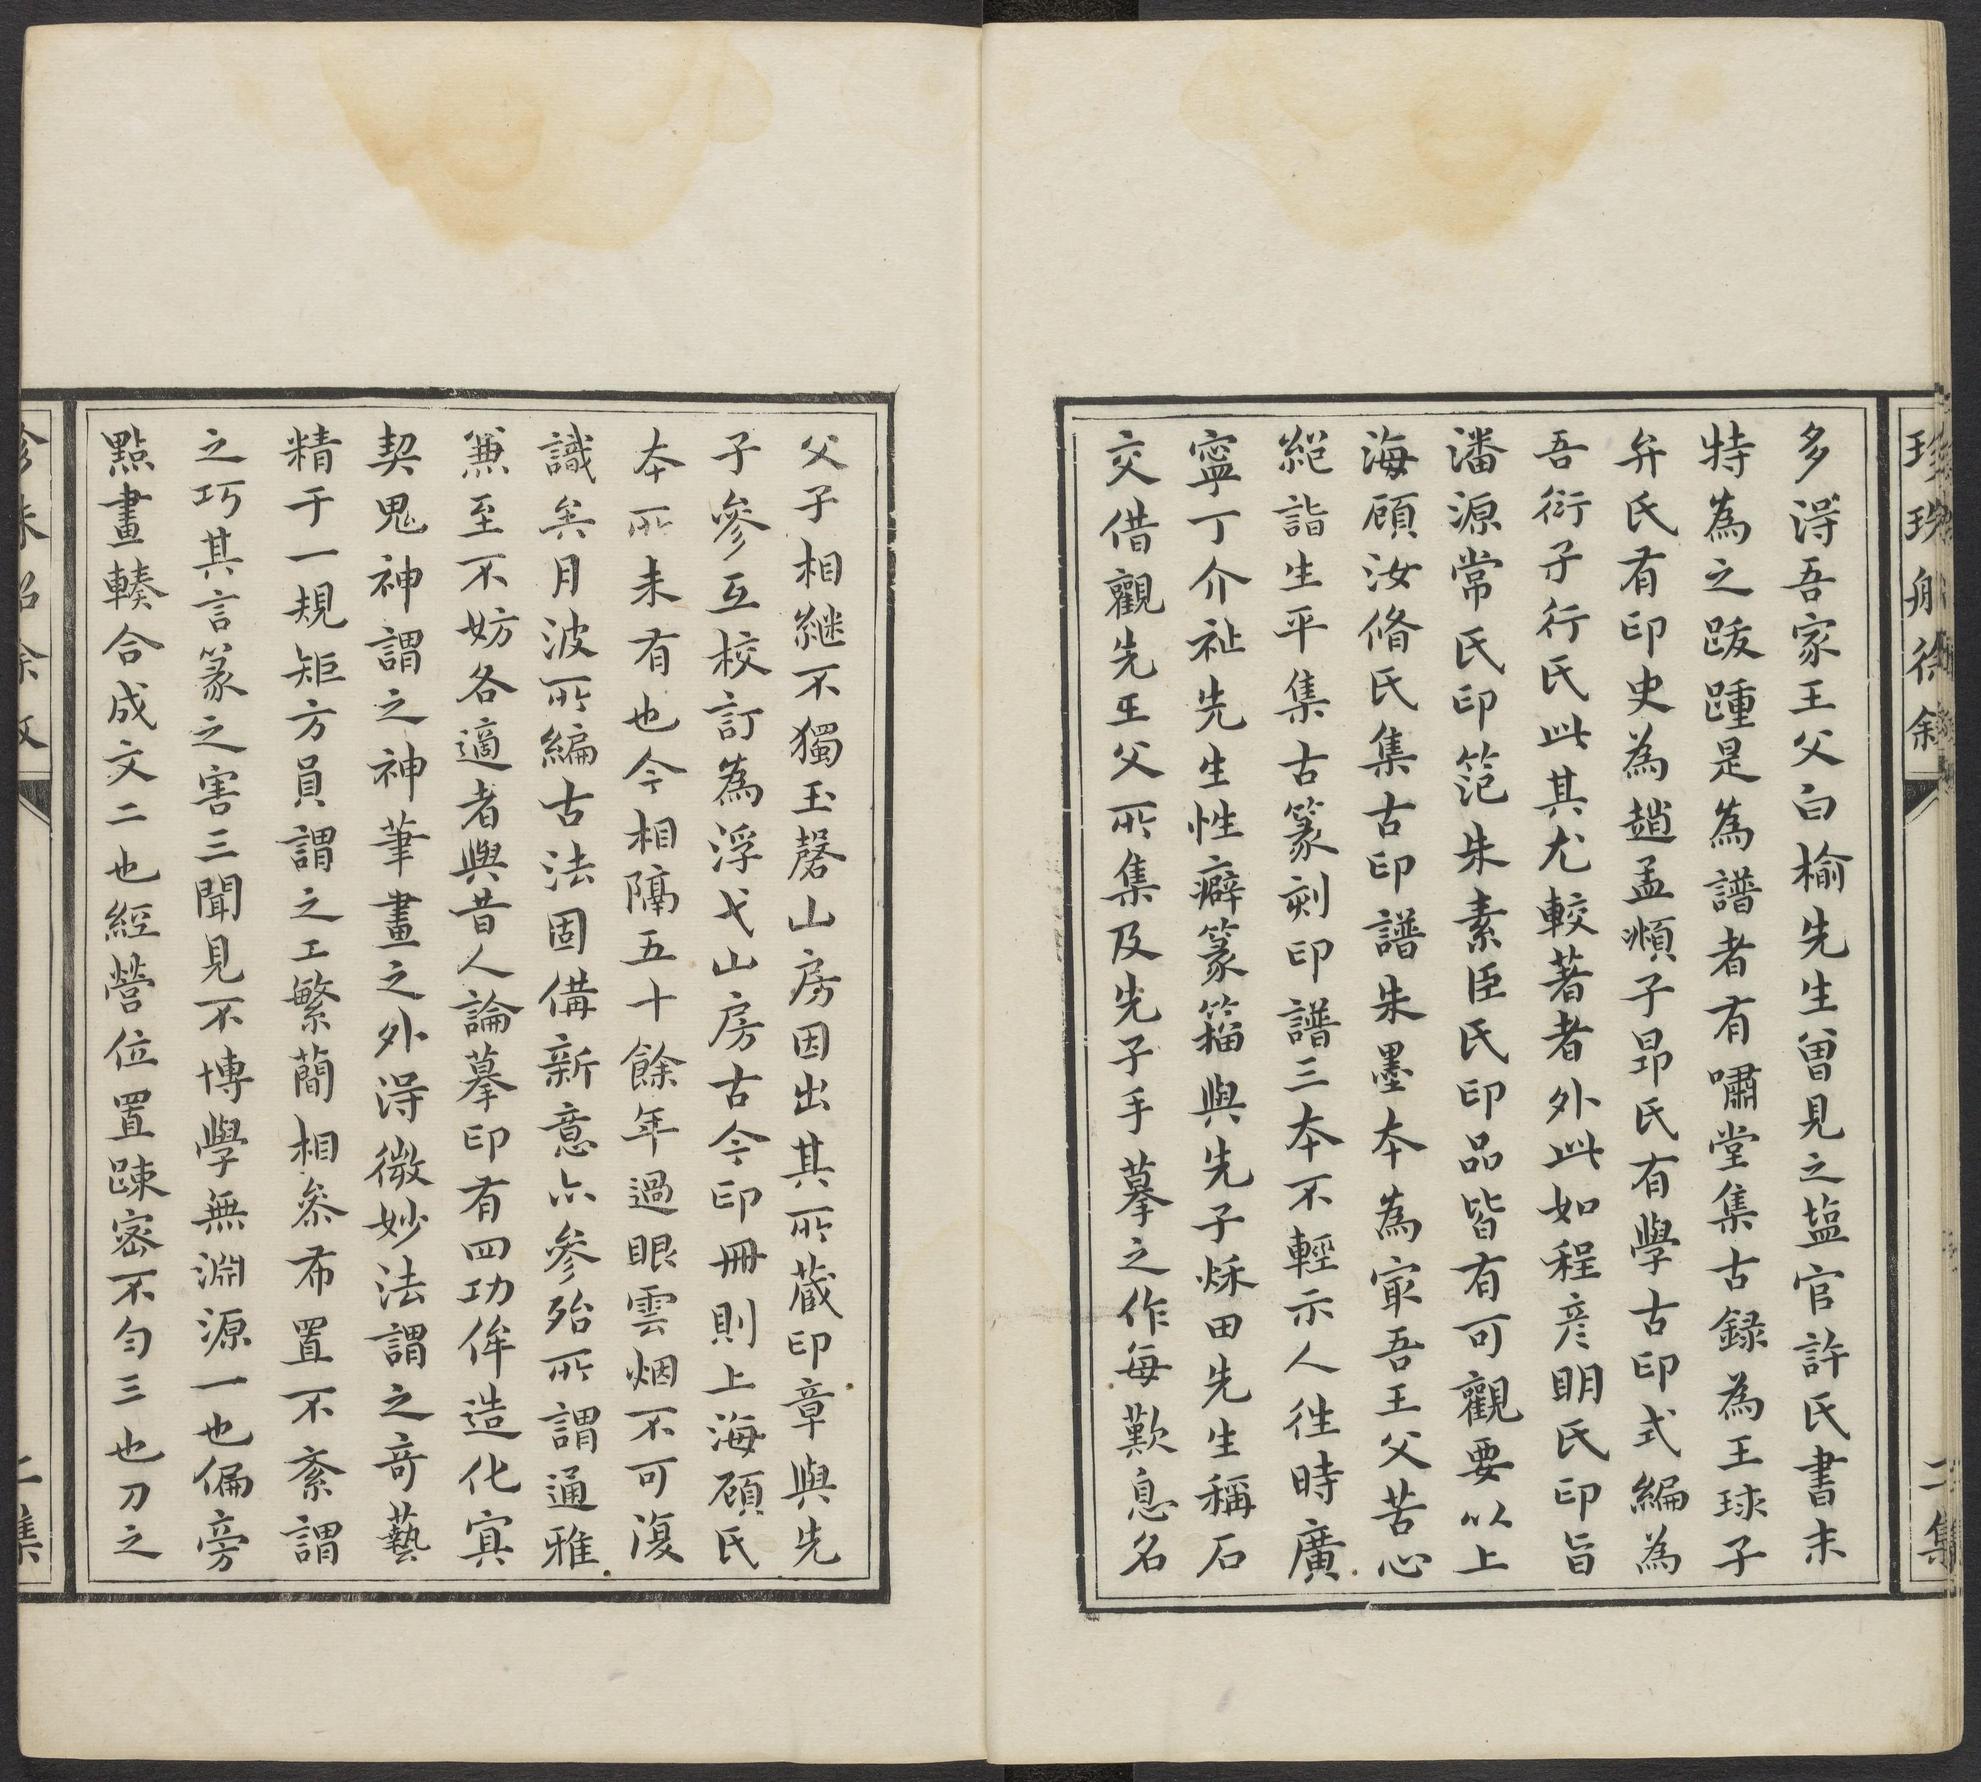 多淂吾家王父白榆先生曾見之塩官許氏書末
特為之跋踵是為譜者有嘯堂集古録為王球子
弁氏有印史為趙孟頫子昻氏有學古印式編為
吾衍子行氏此其尤較著者外此如程彦明氏印旨
潘源常氏印范朱素臣氏印品皆有可觀要以上
海頋汝脩氏集古印譜朱墨夲為㝡吾王父苦心
絕詣生平集古篆刻印譜三夲不輕示人徃時廣
寧丁介祉先生性癖篆籀與先子秌田先生稱石
交借觀先王父所集及先子手摹之作每歎息名
父子相継不獨玉磬山房因出其所蔵印章與先
子參互校訂為浮弋山房古今印冊則上海頋氏
夲所未有也今相隔五十餘年過眼雲烟不可復
識矣月波所編古法固備新意亦參殆所謂通雅
兼至不妨各適者與昔人論摹印有四功侔造化冥
契鬼神謂之神筆畫之外淂微妙法謂之竒藝
精于一規矩方員謂之工繁蕳相叅布置不紊謂
之巧其言篆之害三聞見不博學無淵源一也偏旁
點畫輳合成文二也經營位置踈密不勻三也刀之
二集